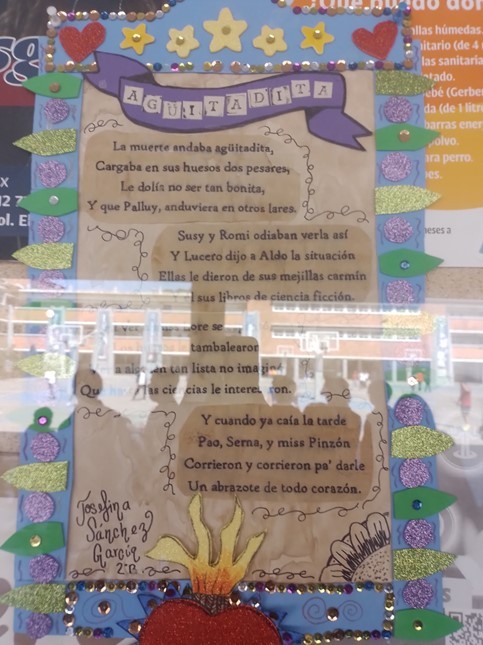 AGÜITADITA
La muerte andaba agüitadita,
Cargaba en sus huesos dos pesares,
Le dolís no ser tan bonita,
Y que Palluy, anduviera en otros lares.
Susy y Romi odiaban verla así
Y Lucero dijo a Aldo la situación
Ellas le dieron de sus mejillas carmín
sus libros de ciencia ficción.
se
tambalearon
tan lista no
las ciencias le interesaron.
Y cuando ya caía la tarde
Pao, Serna, y miss Pinzón
Corrieron y corrieron pa' darle
Un abrazote de todo corazón.
Josefina
Sánchez
García
2°B
llas húmedas.
itario (de 4
las sanitaria
tado.
ebé (Gerber
da (de 1 litro
barras ener
polvo.
ara perro.
es.